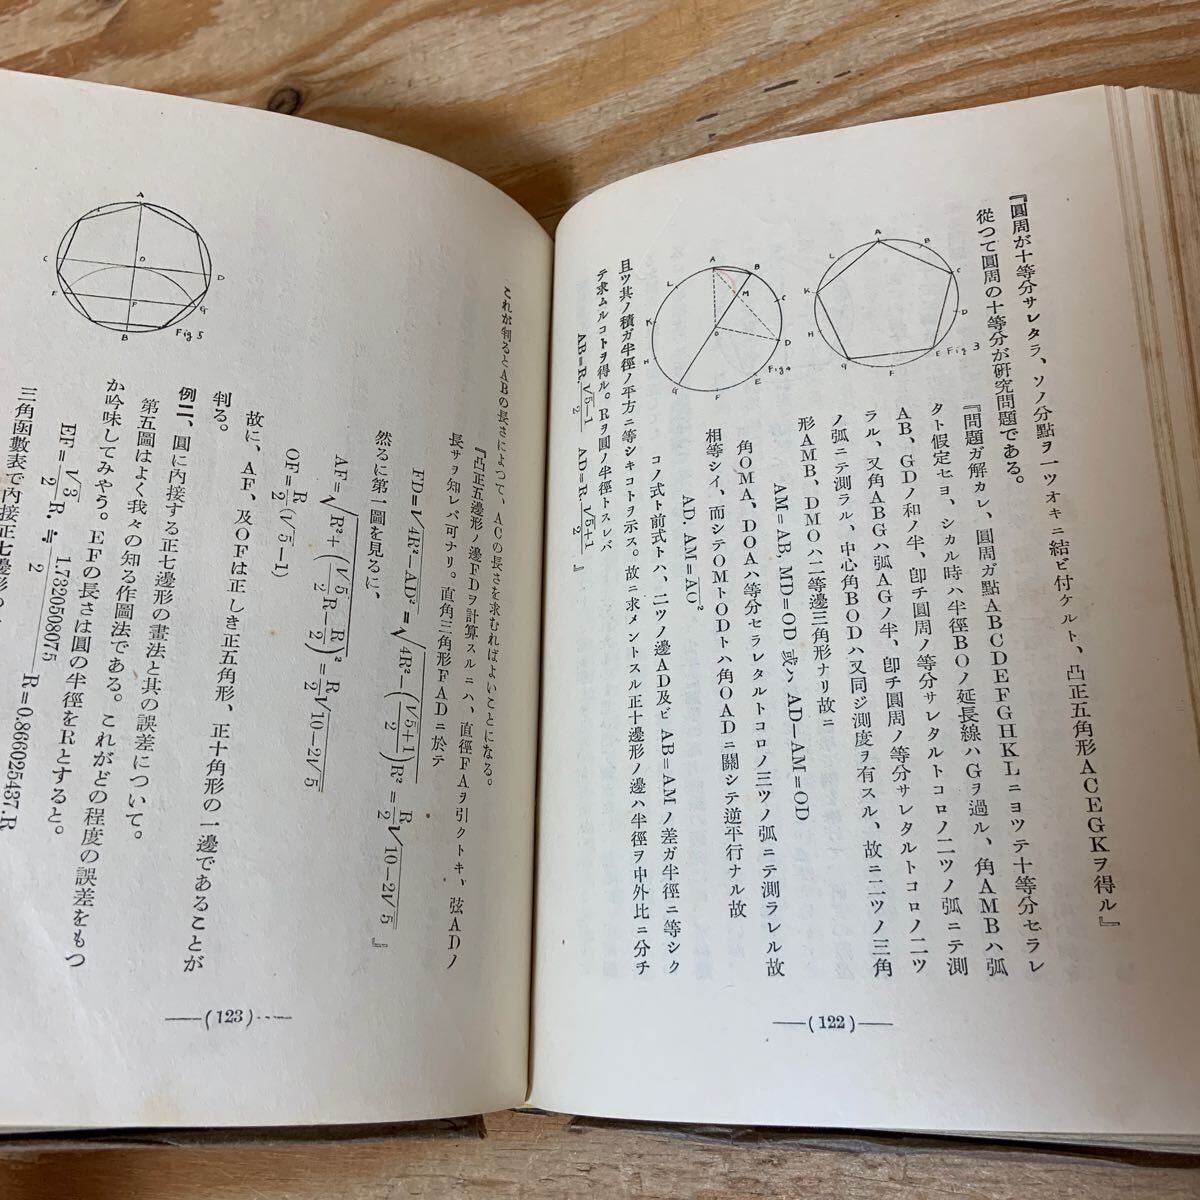 『圓周が十等分サレタラ、ソノ分點ヲ一ツオキニ結ビ付ケルト、凸正五角形ACEGKヲ得ル』
從つて圓周の十等分が硏究問題である。
『問題ガ解カレ、圓周ガ點ABCDEFGHKLニヨツテ十等分セラレ
タト假定セヨ、シカル時ハ半徑BOノ延長線ハGヲ過ル、角AMBハ弧
AB、GDノ和ノ半、卽チ圓周ノ等分サレタルトコロノ二ツノ弧ニテ測
ラル、又角ABGハ弧AGノ半、卽チ圓周ノ等分サレタルトコロノ二ツ
ノ弧ニテ測ラル、中心角BODハ又同ジ測度ヲ有スル、故ニ二ツノ三角
形AMB、DMOハ二等邊三角形ナリ故ニ
AM=AB, MD=OD 或ハ AD—AM=OD
角OMA、DOAハ等分セラレタルトコロノ三ツノ弧ニテ測ラレル故
相等シイ、而シテOMトODトハ角OADニ關シテ逆平行ナル故
AD. AM=AO²
コノ式ト前式トハ、二ツノ邊AD及ビAB=AMノ差ガ半徑ニ等シク
且ツ其ノ積ガ半徑ノ平方ニ等シキコトヲ示ス。故ニ求メントスル正十邊形ノ邊ハ半徑ヲ中外比ニ分チ
テ求ムルコトヲ得ル。Rヲ圓ノ半徑トスレバ
AB=R.(√5−1)/2 AD=R.(√5+1)/2 』
A B C D E F G H K L Fig 3
A B C D E F G H K L M O Fig 4
(122)
これが判るとABの長さによつて、ACの長さを求むればよいことになる。
『凸正五邊形ノ邊FDヲ計算スルニハ、直徑FAヲ引クトキ、弦ADノ
長サヲ知レバ可ナリ。直角三角形FADニ於テ
FD=√(4R²−AD²)=√(4R²−((√5+1)/2)²R²)=R/2√(10−2√5) 』
然るに第一圖を見るに、
AF=√(R²+(√5/2 R−R/2)²)=R/2√(10−2√5)
OF=R/2(√5−1)
故に、AF、及OFは正しき正五角形、正十角形の一邊であることが
判る。
例二、圓に內接する正七邊形の畫法と其の誤差について。
第五圖はよく我々の知る作圖法である。これがどの程度の誤差をもつ
か吟味してみやう。EFの長さは圓の半徑をRとすると。
EF=√3/2 R.≒1.7320508075/2 R=0.866025437.R
三角函數表で內接正七邊形の
A C D O E F G B Fig 5
(123)